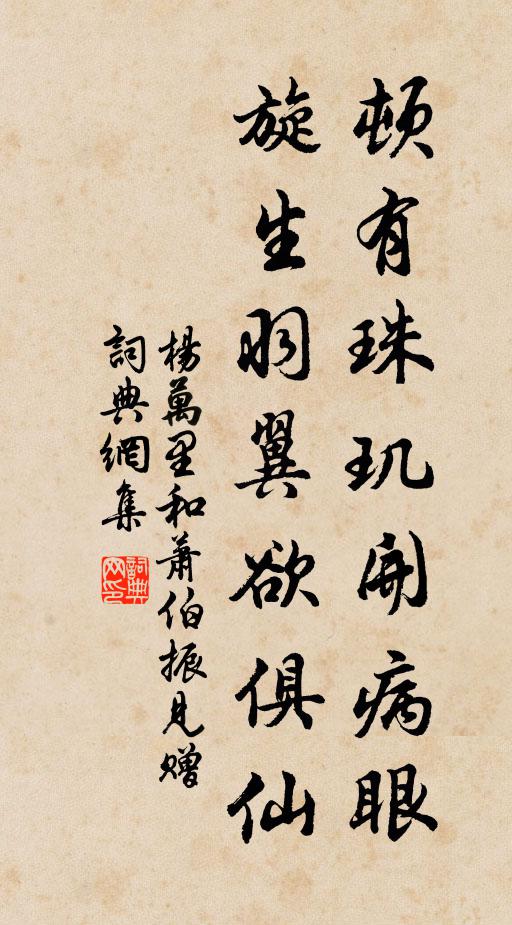 頓有珠玑開病眼
旋生羽翼欲俱仙
楊萬里和蕭伯振見贈
詞典網集
詞典网印